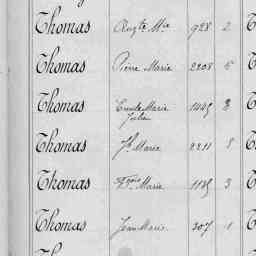 Thomas Augte Mie 928 2
Thomas Pierre Marie 2208 5
Thomas Emile Marie 1445 2
Julien
Thomas Jh Marie 2211 8
Thomas Fçois Marie 1185 3
Thomas Jean Marie 307 1